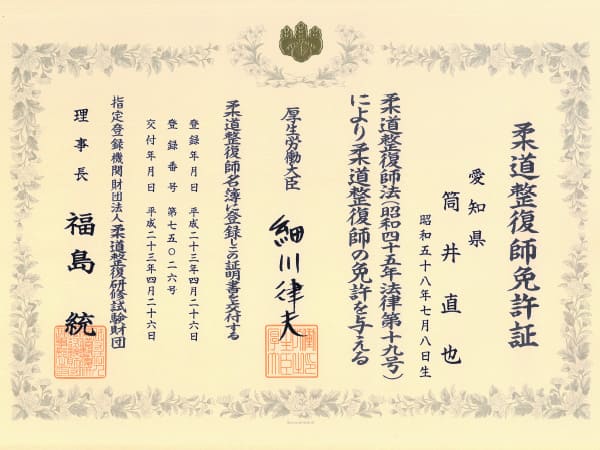 柔道整復師免許証
愛知県
筒井直也
昭和五十八年七月八日生
柔道整復師法(昭和四十五年法律第十九号)
により柔道整復師の免許を与える
厚生労働大臣 細川律夫
柔道整復師名簿に登録しこの証明書を交付する
登録年月日 平成二十三年四月二十六日
登録番号 第七五〇二六号
交付年月日 平成二十三年四月二十六日
指定登録機関財団法人柔道整復研修試験財団
理事長 福島統